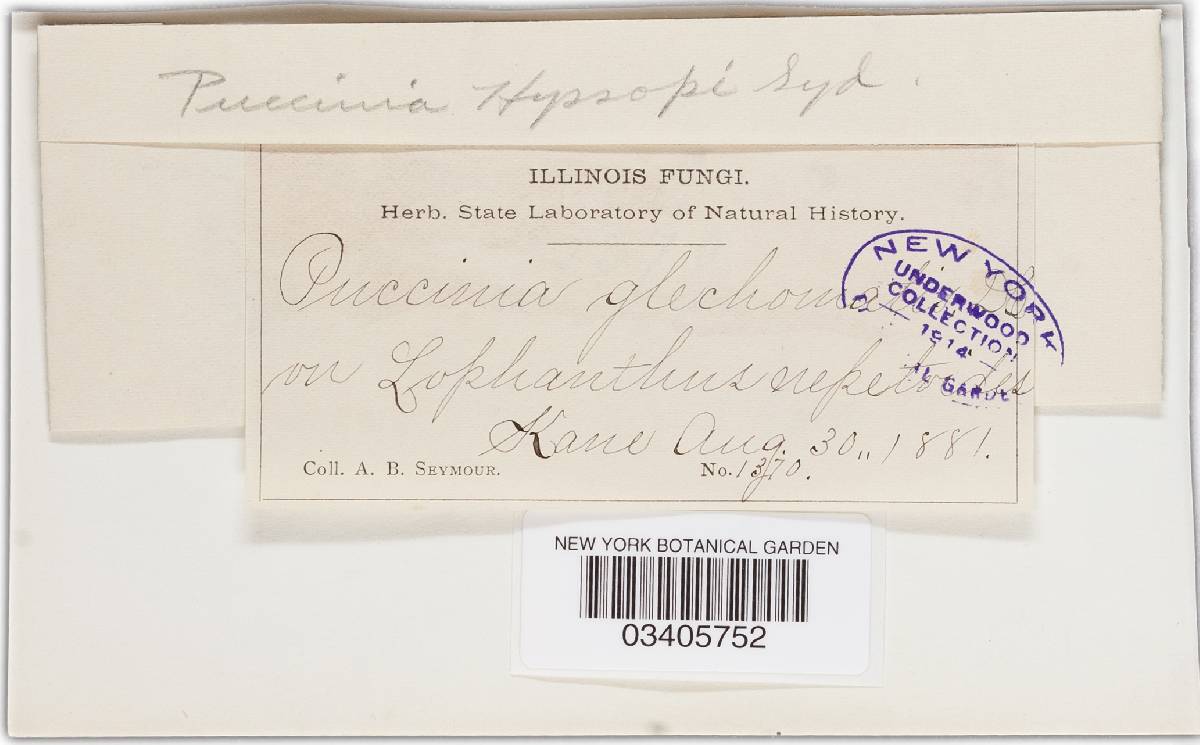 Puccinia Hyssopi Syd.
ILLINOIS FUNGI.
Herb. State Laboratory of Natural History.
Puccinia glechomatis DC
on Lophanthus nepetoides
Kane Aug. 30., 1881.
Coll. A. B. SEYMOUR.
No. 1370.
NEW YORK
UNDERWOOD
COLLECTION
1914
AL GARDE
NEW YORK BOTANICAL GARDEN
03405752